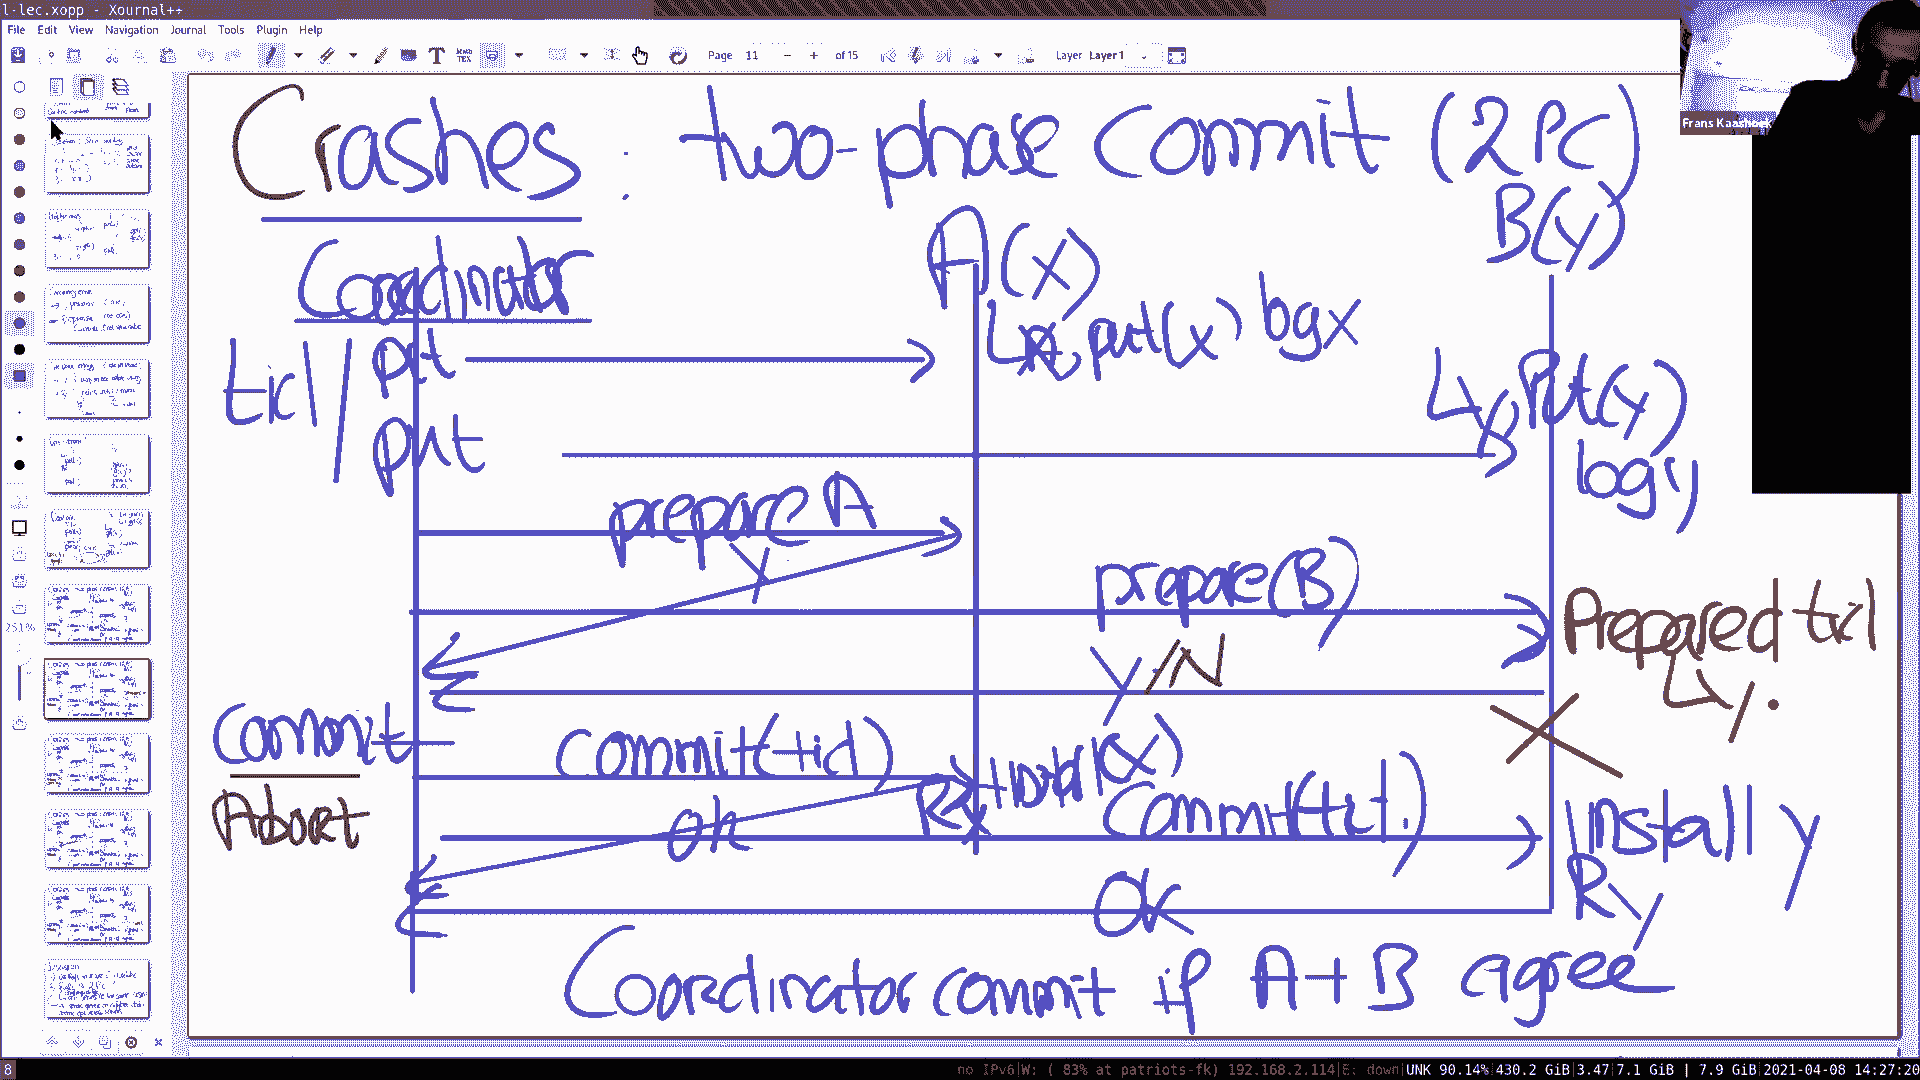 l-lec.xopp - Xournal++
File Edit View Navigation Journal Tools Plugin Help
Page 11 - + of 15 Layer Layer1
Frans Kaashoek
Crashes : two-phase commit (2PC)
Coordinator A(x) B(y)
tid / put Lx, put(x) log x
put Ly, Put(y)
log y
prepare A
Y
prepare(B) Prepared tid
Y/N Ly.
Commit commit(tid) Rx install(x)
Abort ok commit(tid) install y
Ry
OK
Coordinator commit if A+B agree
251%
8 no IPv6|W: ( 83% at patriots-fk) 192.168.2.114|E: down|UNK 90.14%|430.2 GiB|3.47|7.1 GiB | 7.9 GiB|2021-04-08 14:27:20